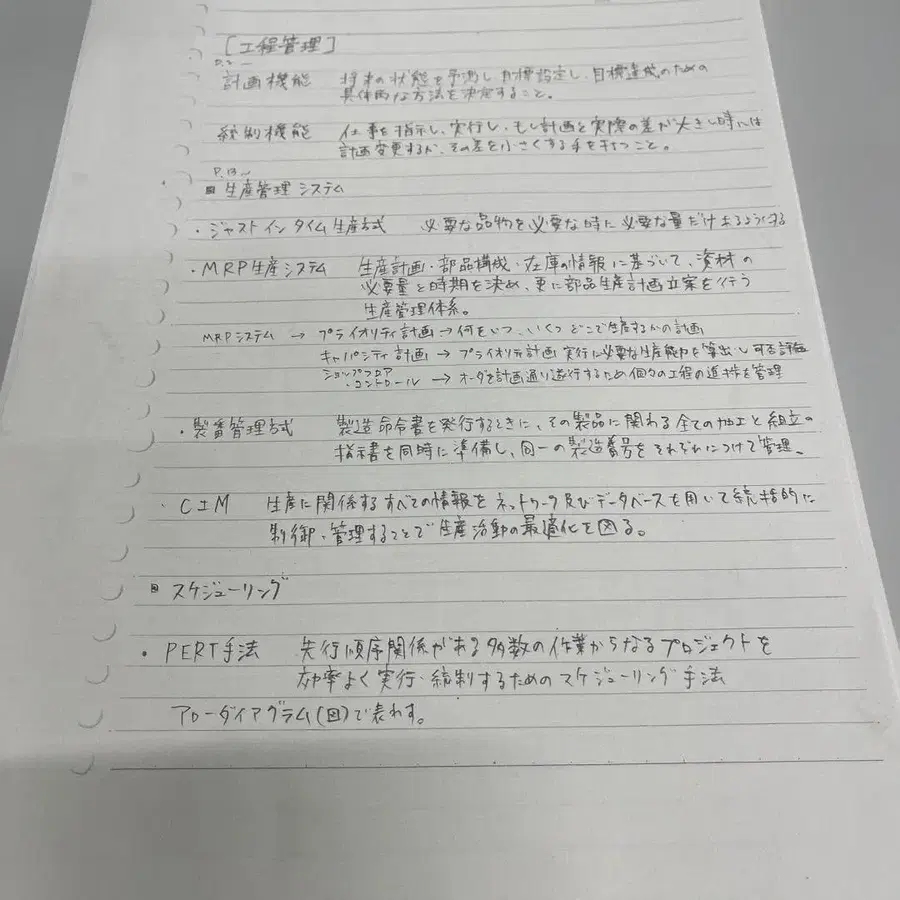 [工程管理]
計画機能 将来の状態を予測し、目標設定し、目標達成のための
具体的な方法を決定すること。
統制機能 仕事を指示し、実行し、もし計画と実際の差が大きい時には
計画変更するか、その差を小さくする手を打つこと。
P.13〜
生産管理システム
・ジャストインタイム生産方式 必要な品物を必要な時に必要な量だけ来るようにする
・MRP生産システム 生産計画・部品構成・在庫の情報に基づいて、資材の
必要量と時期を決め、更に部品生産計画立案を行う
生産管理体系。
MRPシステム → プライオリティ計画 → 何をいつ、いくつ どこで生産するかの計画
キャパシティ計画 → プライオリティ計画 実行に必要な生産能力を算出し可否評価
ショップフロア
・コントロール → オーダを計画通り遂行するため個々の工程の進捗を管理
・製番管理方式 製造命令書を発行するときに、その製品に関わる全ての加工と組立の
指示書を同時に準備し、同一の製造番号をそれぞれにつけて管理、
・CIM 生産に関係するすべての情報をネットワーク及びデータベースを用いて統括的に
制御・管理することで生産活動の最適化を図る。
スケジューリング
・PERT手法 先行順序関係がある多数の作業からなるプロジェクトを
効率よく実行・統制するためのスケジューリング手法
アローダイアグラム(図)で表わす。